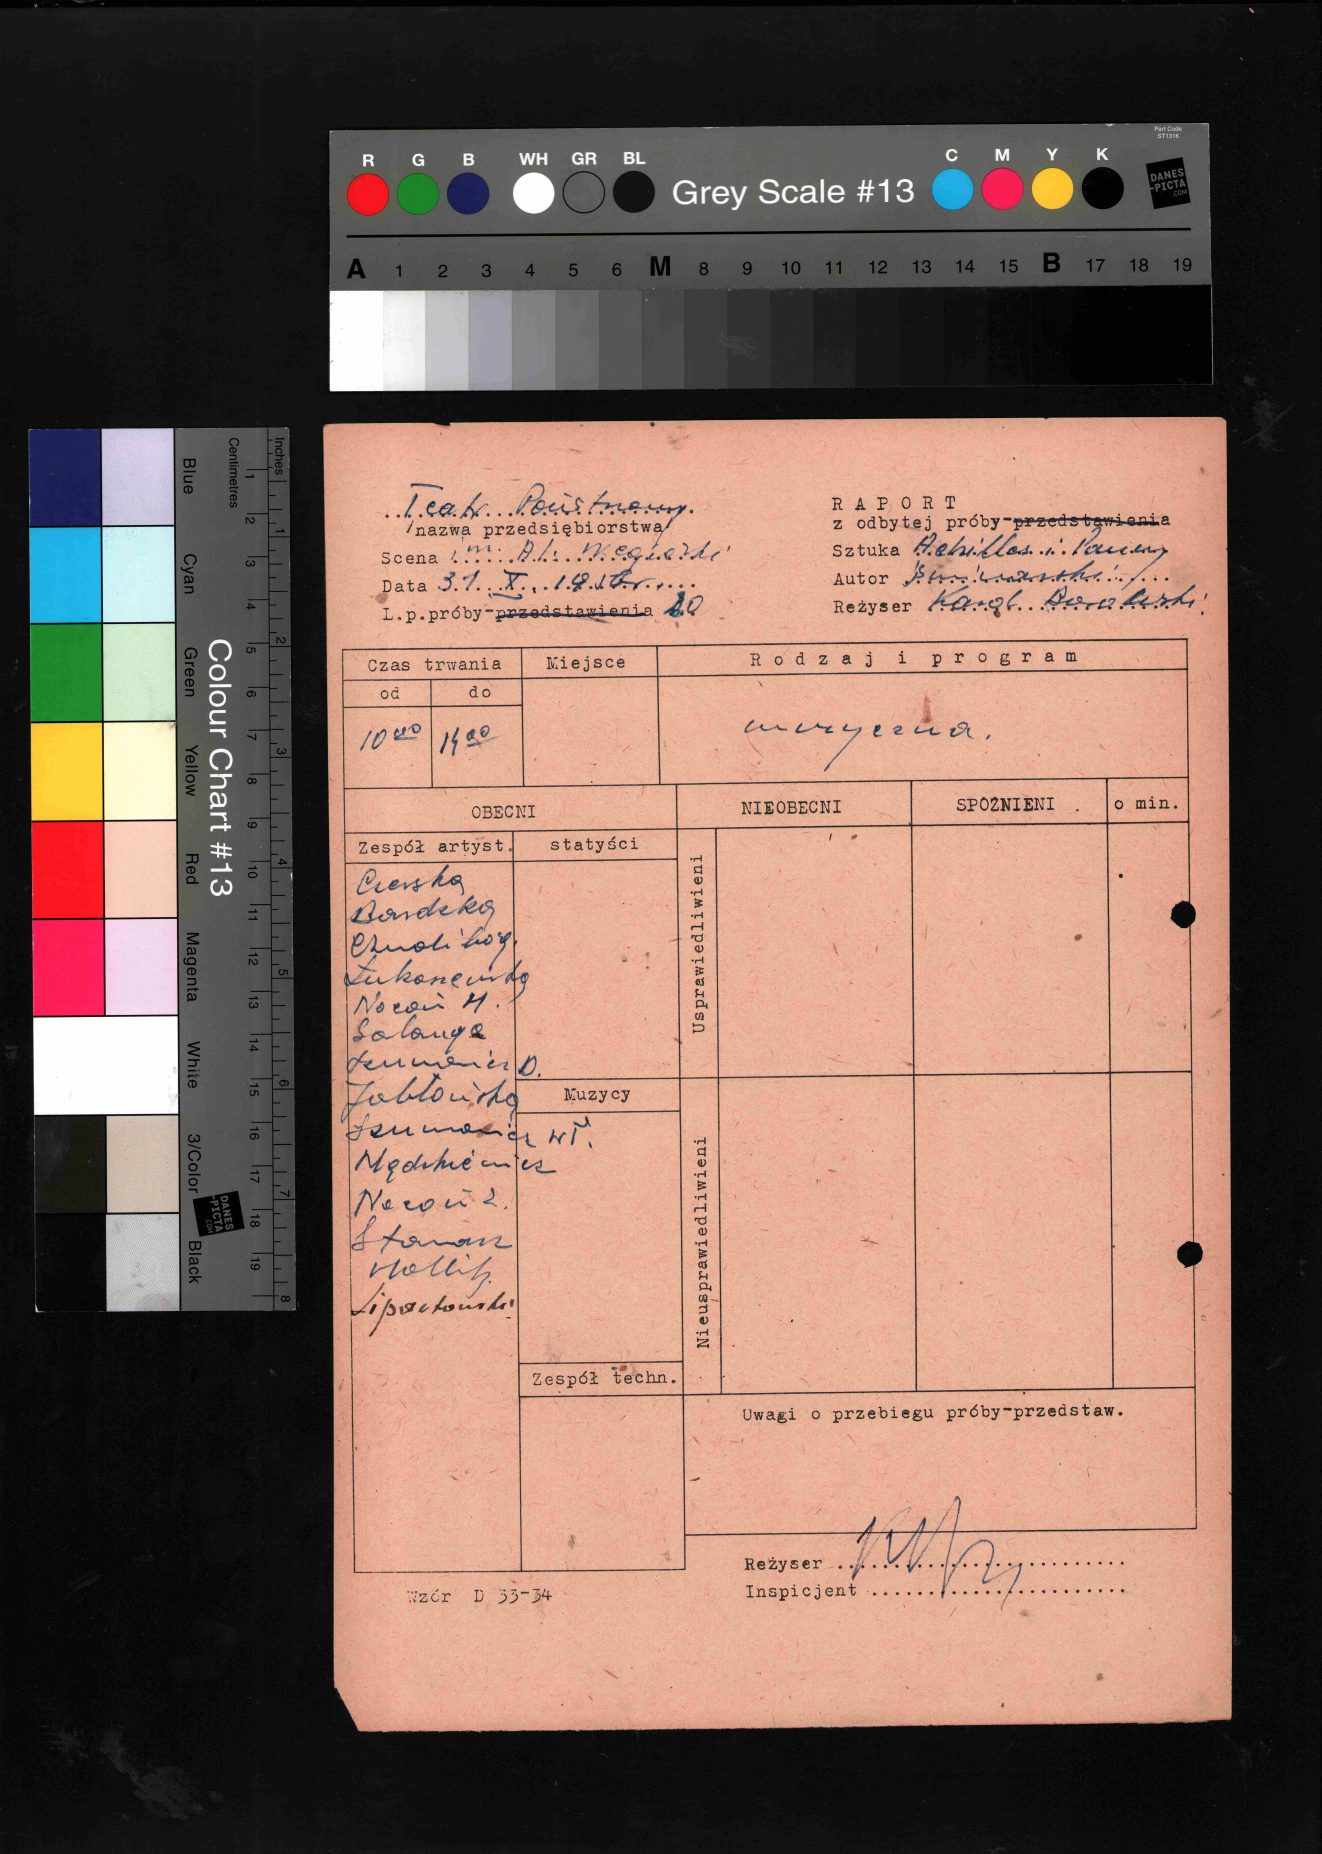 Part Code
ST1316
R G B WH GR BL Grey Scale #13 C M Y K
DANES
-PICTA
.COM
A 1 2 3 4 5 6 M 8 9 10 11 12 13 14 15 B 17 18 19
Colour Chart #13
Blue Cyan Green Yellow Red Magenta White 3/Color Black
Centimetres
1 2 3 4 5 6 7 8 9 10 11 12 13 14 15 16 17 18 19
Inches
1 2 3 4 5 6 7 8
DANES
-PICTA
.COM
Teatr Państwowy
/nazwa przedsiębiorstwa/
Scena im. Al. Węgierki
Data 31. X.
L.p.próby-przedstawienia 20
RAPORT
z odbytej próby-przedstawienia
Sztuka Achilles i Panny
Autor
Reżyser Karol Borowski
Czas trwania Miejsce Rodzaj i program
od do
10 00 14 00 muzyczna.
OBECNI NIEOBECNI SPÓŹNIENI o min.
Zespół artyst. statyści
Usprawiedliwieni
Czerska
Bardzka
Łukaszewska
Nocoń H.
Szumowicz D.
Jabłońska
Muzycy
Szumowicz Wł.
Nieusprawiedliwieni
Nocoń Z.
Zespół techn.
Uwagi o przebiegu próby-przedstaw.
Reżyser
Inspicjent
Wzór D 33-34